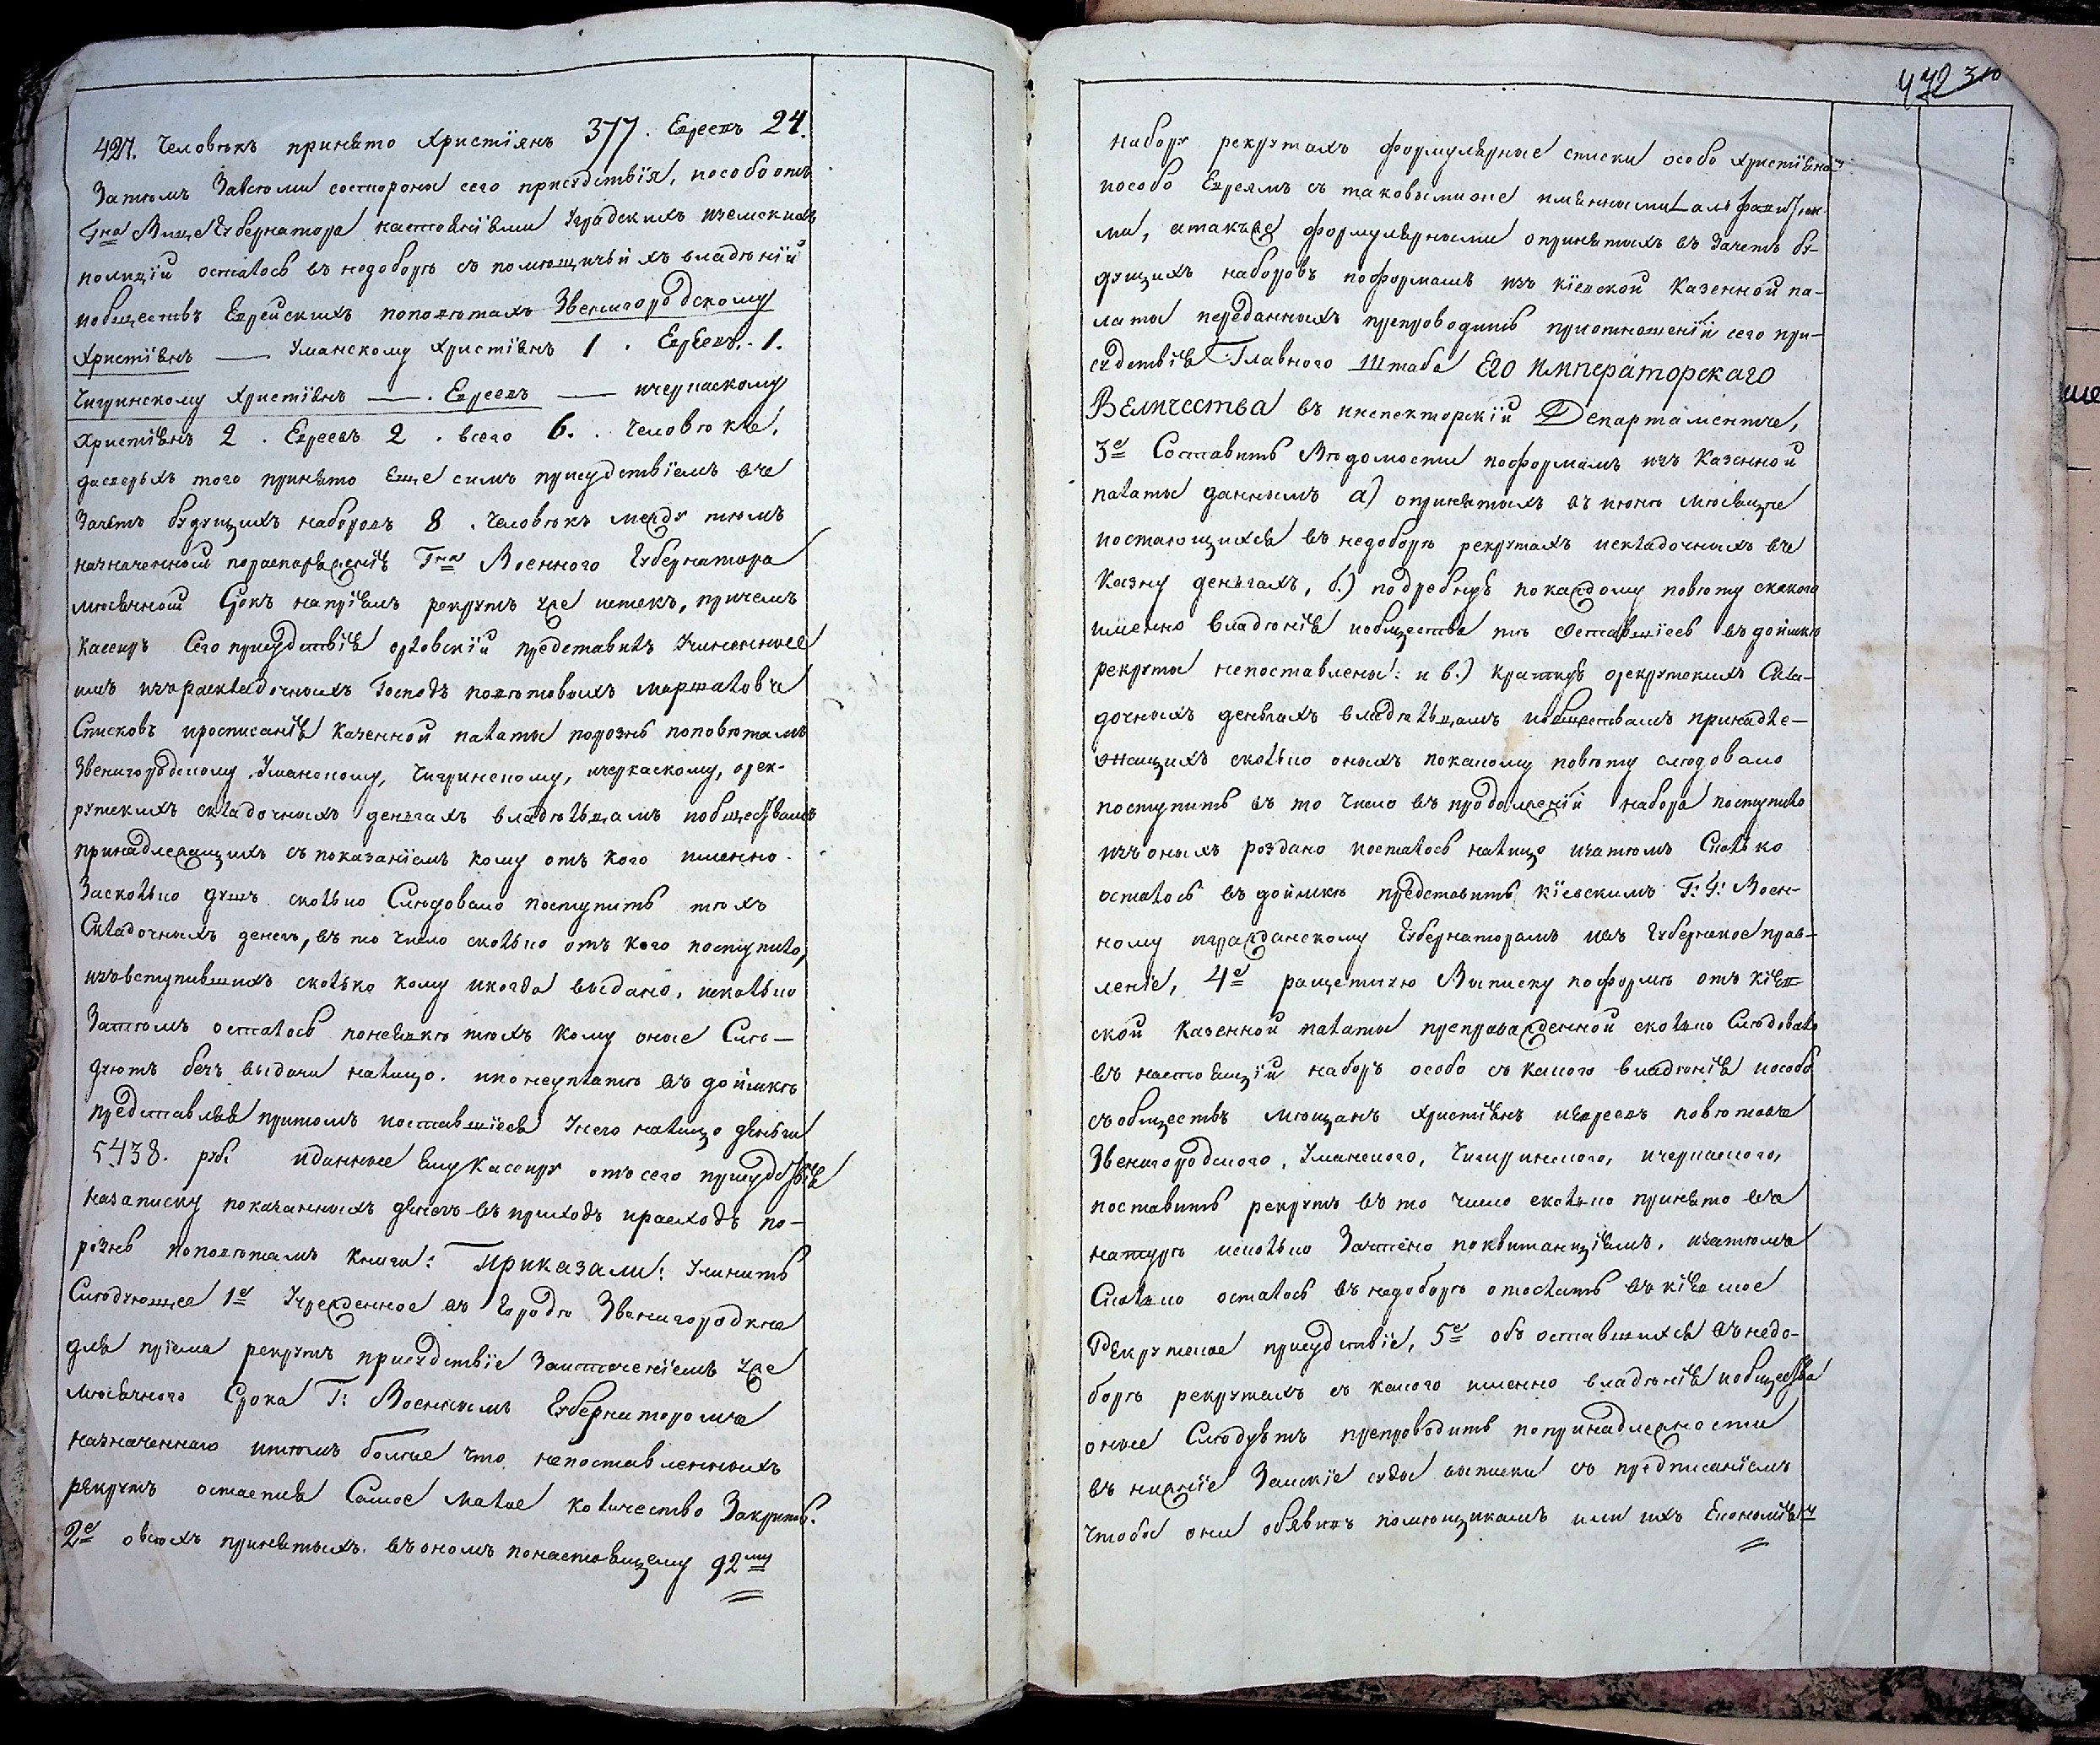 427. Человѣкъ принято Христіянъ 377. Евреевъ 24.
Затѣмъ Завсѣми состороны сего присудствія, пособо отъ
Гна Вице Губернатора настояніями Уградскихъ иземскихъ
полицій осталось въ недоборѣ съ помѣщичьихъ владѣній
иобществъ Еврейскихъ поповѣтахъ Звенигородскому
Христіянъ — Уманскому Христіянъ 1. Евреевъ. 1.
Чигринскому Христіянъ — . Евреевъ — ичеркаскому
Христіянъ 2. Евреевъ 2. всего 6. Человѣкъ,
дасверхъ того принято Еще симъ присудствіемъ въ
Зачетъ будущихъ наборовъ 8. Человѣкъ между тѣмъ
назначенный пораспоряженію Гна Военного Губернатора
мѣсячный Срокъ напріемъ рекрутъ уже истекъ, причемъ
Кассиръ Сего присудствія орловскій представилъ Учиненные
имъ изъраскладочныхъ Господъ повѣтовыхъ маршаловъ
Списковъ иросписанія Казенной палаты порознь поповѣтамъ
Звенигородскому Уманскому, Чигринскому, ичеркаскому, орек-
рутскихъ складочныхъ деньгахъ владѣльцамъ иобществамъ
принадлежащихъ съпоказаніемъ кому отъ кого именно.
Засколько душъ сколько Слѣдовало поступить тѣхъ
Складочныхъ денегъ, въ то число сколько отъ кого поступило,
изъвступившихъ сколько кому икогда выдано, исколько
Затѣмъ осталось понеявкѣ тѣхъ кому оные Слѣ-
дуютъ безъ выдачи налицо. ипонеуплатѣ въ доимкѣ
представляя притомъ иоставшіеся Унего налицо деньги
5438. руб. иданные Ему Кассиру отъ сего присудствія
Назаписку показанныхъ денегъ въ приходъ ирасходъ по-
рознь поповѣтамъ книги: Приказали: Учинить
Слѣдующее 1е Учрежденное въ Городѣ Звенигородкѣ
для пріема рекрутъ присудствіе Заистеченіемъ уже
мѣсячного Срока Г: Военнымъ Губернаторомъ
назначеннаго итѣмъ болѣе что непоставленныхъ
рекрутъ остается Самое малое количество Закрыть.
2е овсѣхъ принятыхъ въ ономъ понастоящему 92му
472 310
набору рекрутахъ формулярные списки особо Христіяна
иособо Евреямъ съ таковымиже именными алфавитами
ми, атакъже формулярными опринятыхъ въ Зачетъ бу-
дущихъ наборовъ поформамъ изъ Кіевской Казенной па-
латы переданныхъ препроводить приотношеніи сего при-
судствія Главного Штаба Его Императорскаго
Величества въ инспекторскій Департаментъ,
3е Составить Вѣдомости поформамъ изъ Казенной
палаты даннымъ а) опринятыхъ въ июнѣ мѣсяцѣ
иостающихся въ недоборѣ рекрутахъ искладочныхъ въ
Казну деньгахъ, б.) подробную по каждому повѣту скакого
именно владѣнія иобщества тѣ оставшіесь въ доимкѣ
рекруты непоставлены: и в.) краткую орекрутскихъ Скла-
дочныхъ деньгахъ владѣльцамъ иобществамъ принадле-
жащихъ сколько оныхъ покаждому повѣту слѣдовало
поступить въ то число въ продолженіи набора поступило
изъ оныхъ роздано иосталось налицо изатѣмъ Сколько
осталось въ доимкѣ представить Кіевскимъ Г: Г: Воен-
ному игражданскому Губернаторамъ ивъ Губернское прав-
леніе, 4е ращетную Выписку поформѣ отъ Кіев-
ской Казенной палаты препровожденной сколько Слѣдовало
въ настоящій наборъ особо съ каного владѣнія иособо
съ обществъ мѣщанъ Христіянъ иЕвреевъ повѣтовъ
Звенигородского, Уманского, Чигиринского, ичеркаского,
поставить рекрутъ въ то число сколько принято въ
натурѣ исколько Зачтено поквитанціямъ, изатѣмъ
Сколько осталось въ недоборѣ отослать въ Кіевское
Рекрутское присудствіе, 5е объ оставшихся въ недо-
борѣ рекрутахъ съ каного именно владѣнія иобщества
оные Слѣдуетъ препроводить попринадлежности
въ нижніе Земскіе суды выписки съ предписаніемъ
чтобы они объявивъ помѣщикамъ или ихъ Економіямъ